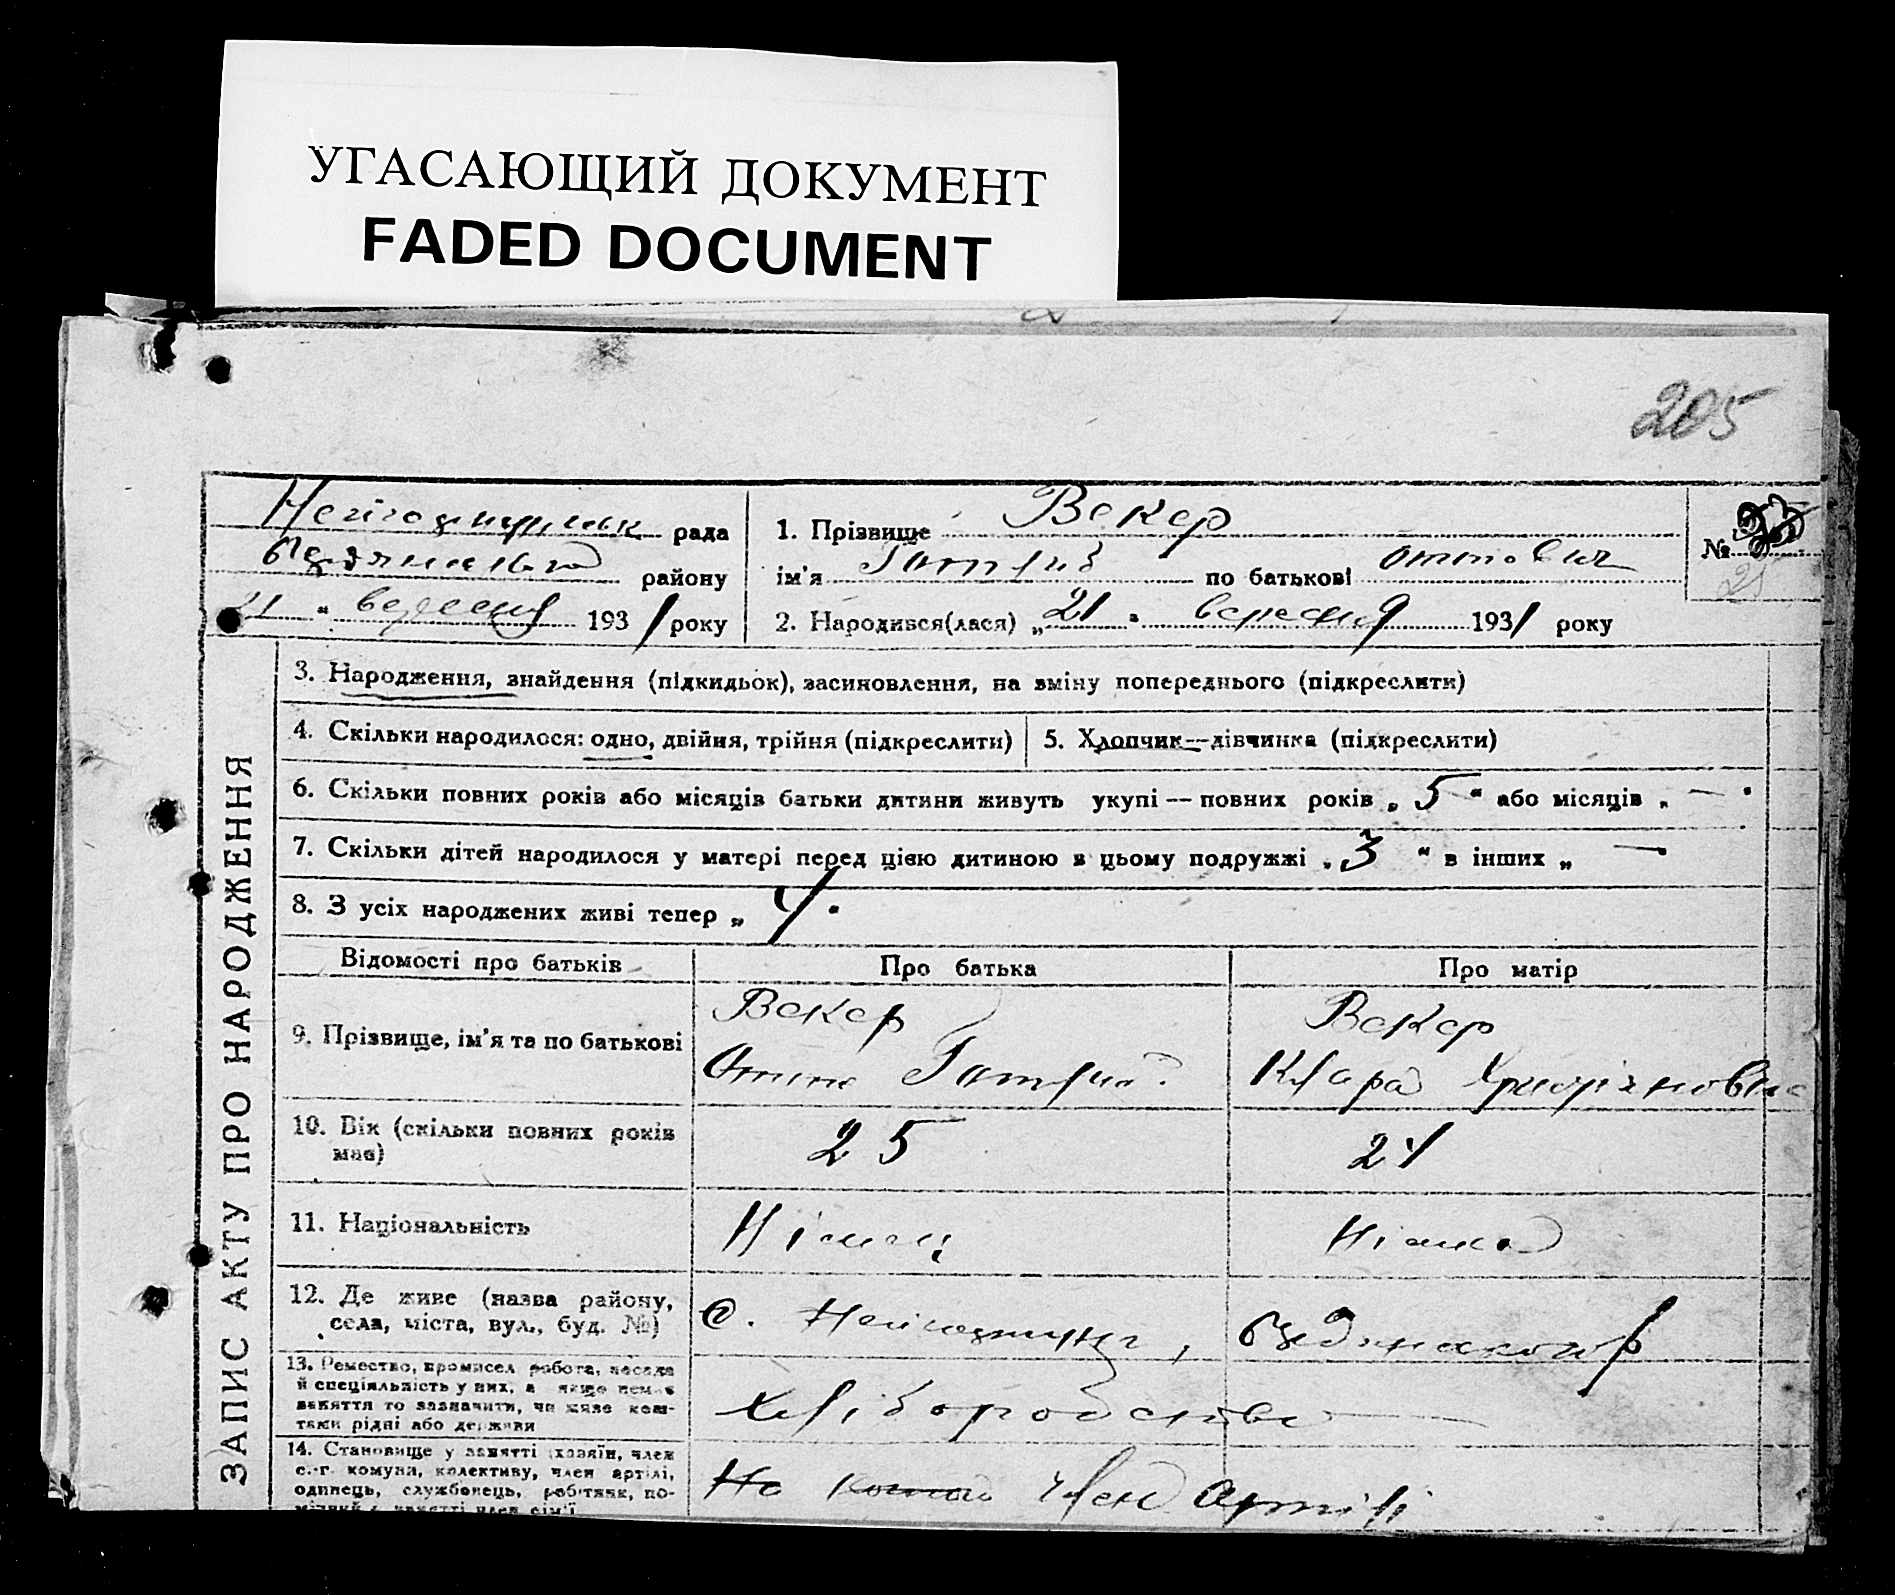 УГАСАЮЩИЙ ДОКУМЕНТ
FADED DOCUMENT
205
рада
району
21 „ вересня 1931 року
1. Прізвище Векер
ім'я Готфрид по батькові Оттович
2. Народився(лася) „21 „ вересня 1931 року
№
25
ЗАПИС АКТУ ПРО НАРОДЖЕННЯ
3. Народження, знайдення (підкидьок), засиновлення, на зміну попереднього (підкреслити)
4. Скільки народилося: одно, двійня, трійня (підкреслити)
5. Хлопчик—дівчинка (підкреслити)
6. Скільки повних років або місяців батьки дитини живуть укупі — повних років „ 5 “ або місяців „ —
7. Скільки дітей народилося у матері перед цією дитиною в цьому подружжі „ 3 “ в інших „ —
8. З усіх народжених живі тепер „ 4
Відомості про батьків
Про батька
Про матір
9. Прізвище, ім'я та по батькові
Векер
Отто
Векер
Клара
10. Вік (скільки повних років має)
25
24
11. Національність
Німець
Німка
12. Де живе (назва району,
села, міста, вул., буд. №)
с.
13. Ремество, промисел робота, посада
й спеціяльність у них, а якщо немає
заняття то зазначити, чи живе кош-
тами рідні або держави
Хліборобство —
14. Становище у занятті (хазяїн, член
с.-г. комуни, колективу, член артілі,
одинець, службовець, робітник, по-
член Артілі